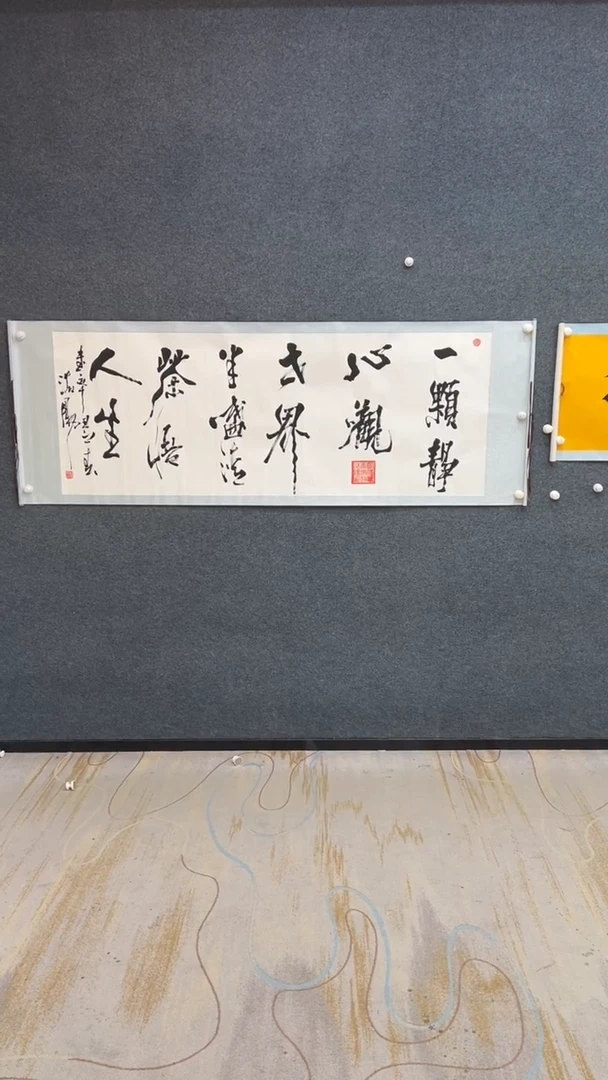 一顆靜
心觀
世界
半盞清
茶悟
人生